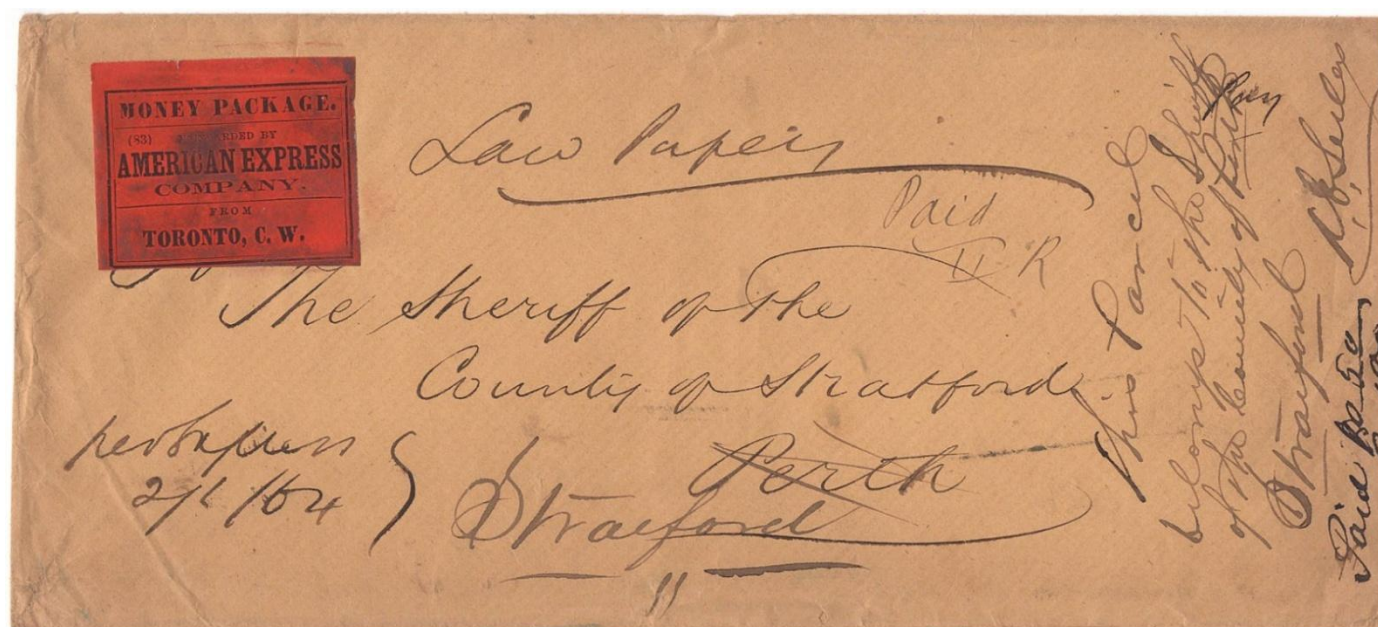 MONEY PACKAGE.
(83) FORWARDED BY
AMERICAN EXPRESS
COMPANY.
FROM
TORONTO, C. W.
Law Papers
Paid
R
The Sheriff of the
County of Stratford
Perth
Stratford
per Express
/64
This Parcel
belongs to the Sheriff
of the County of Perth
Stratford
Paid